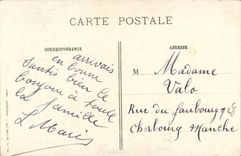 CARTE POSTALE
CORRESPONDANCE
en arrivais
en bonne
Santé bien le
bonjour à toute
la famille
L Marie
ADRESSE
M Madame
Valo
Rue du faubourg
Cherbourg Manche